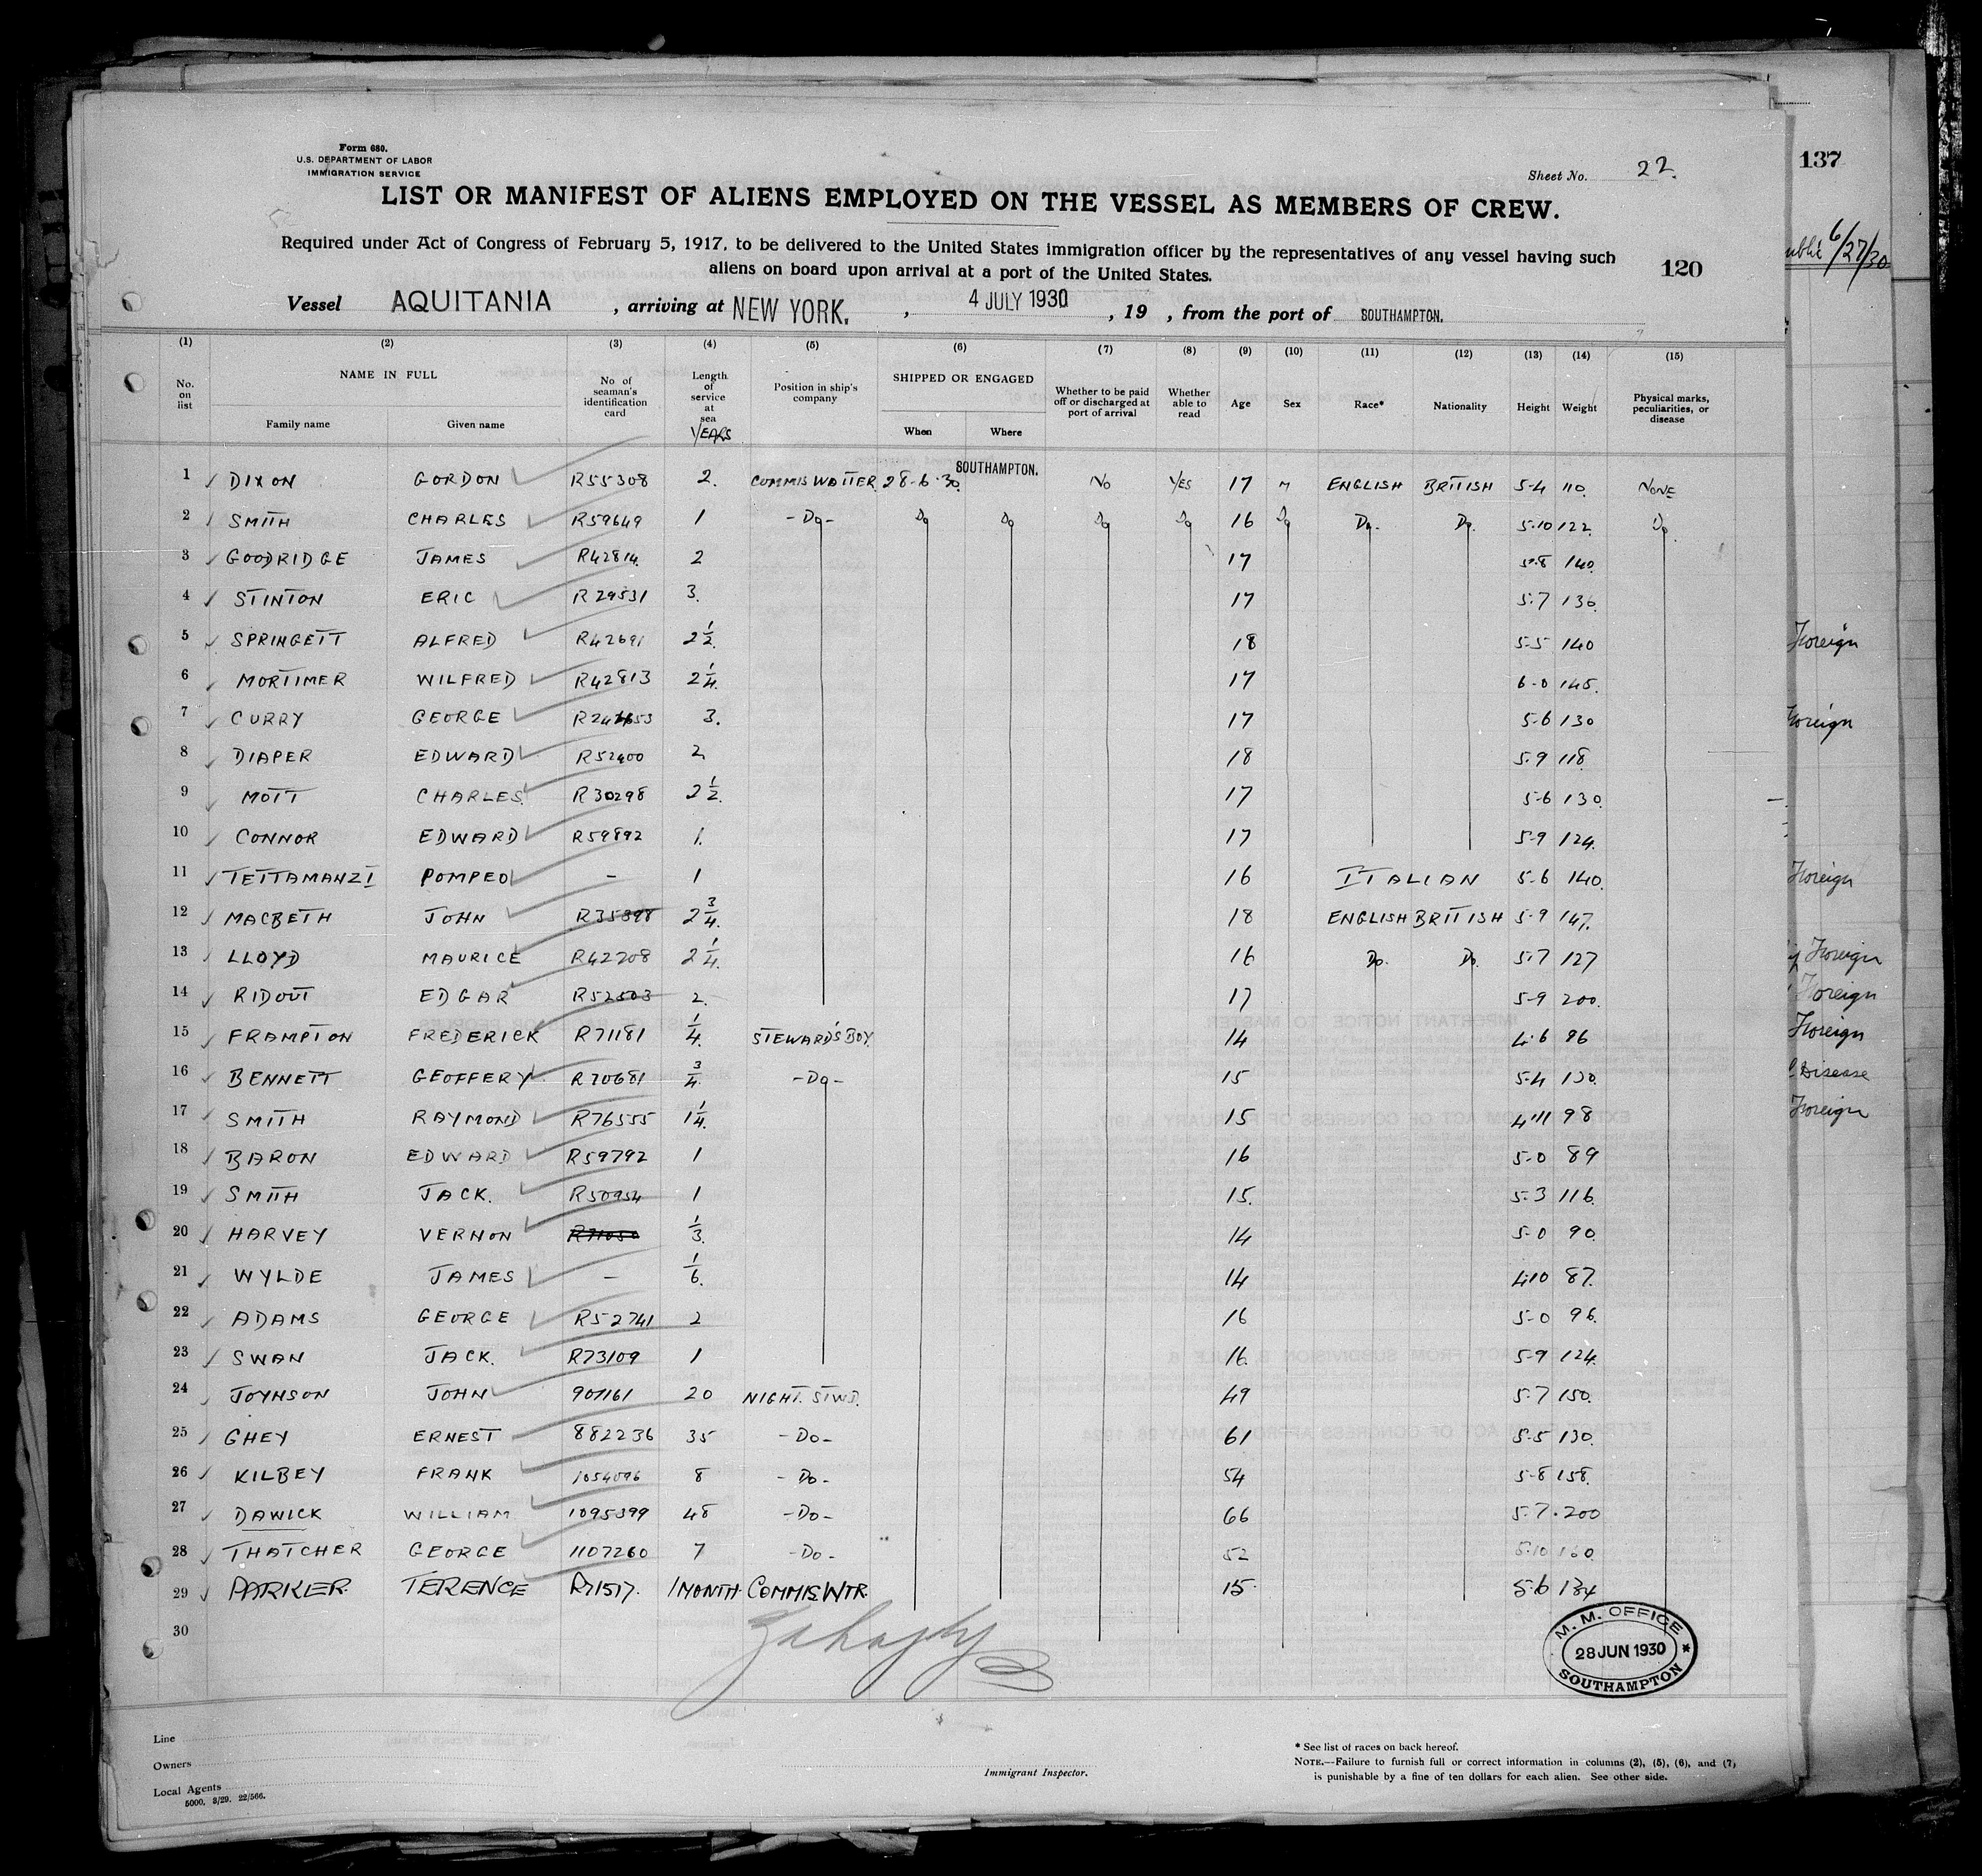 Form 680.
U.S. DEPARTMENT OF LABOR
IMMIGRATION SERVICE
Sheet No. 22.
137
LIST OR MANIFEST OF ALIENS EMPLOYED ON THE VESSEL AS MEMBERS OF CREW.
Required under Act of Congress of February 5, 1917, to be delivered to the United States immigration officer by the representatives of any vessel having such
aliens on board upon arrival at a port of the United States.
120
6/27/30
Vessel AQUITANIA , arriving at NEW YORK. , 4 JULY 1930 , 19 , from the port of SOUTHAMPTON.
(1) (2) (3) (4) (5) (6) (7) (8) (9) (10) (11) (12) (13) (14) (15)
No. on list NAME IN FULL Family name Given name No. of seaman's identification card Length of service at sea YEARS Position in ship's company SHIPPED OR ENGAGED When Where Whether to be paid off or discharged at port of arrival Whether able to read Age Sex Race* Nationality Height Weight Physical marks, peculiarities, or disease
1 DIXON GORDON R55308 2. COMMIS WAITER 28-6-30. SOUTHAMPTON. NO YES 17 M ENGLISH BRITISH 5-4 110. NONE
2 SMITH CHARLES R59649 1 -Do- Do Do Do Do 16 Do Do. Do. 5-10 122. Do.
3 GOODRIDGE JAMES R42814. 2 17 5-8 140.
4 STINTON ERIC R29531 3. 17 5-7 136.
5 SPRINGETT ALFRED R42691 2 1/2. 18 5-5 140
6 MORTIMER WILFRED R42813 2 1/4. 17 6-0 145.
7 CURRY GEORGE 3. 17 5-6 130
8 DIAPER EDWARD R52400 2 18 5-9 118.
9 MOTT CHARLES. R30298 2 1/2. 17 5-6 130.
10 CONNOR EDWARD R59892 1. 17 5-9 124.
11 TETTAMANZI POMPEO - 1 16 ITALIAN 5-6 140.
12 MACBETH JOHN R35398 2 3/4. 18 ENGLISH BRITISH 5-9 147.
13 LLOYD MAURICE R42208 2 1/4. 16 Do. Do. 5-7 127
14 RIDOUT EDGAR R52503 2. 17 5-9 200.
15 FRAMPTON FREDERICK R71181 1/4. STEWARD'S BOY. 14 4-6 96
16 BENNETT GEOFFERY R70681 3/4. -Do- 15 5-4 130.
17 SMITH RAYMOND R76555 1 1/4. 15 4-11 98
18 BARON EDWARD R59792 1 16 5-0 89
19 SMITH JACK. R50954 1 15. 5-3 116.
20 HARVEY VERNON 1/3. 14 5-0 90.
21 WYLDE JAMES - 1/6. 14 4-10 87.
22 ADAMS GEORGE R52741 2 16 5-0 96.
23 SWAN JACK. R73109 1 16. 5-9 124.
24 JOYNSON JOHN 907161 20 NIGHT. STWD. 49 5-7 150.
25 GHEY ERNEST 882236 35 -Do- 61 5-5 130.
26 KILBEY FRANK 1054096 8 -Do- 54 5-8 158.
27 DAWICK WILLIAM 1095399 48 -Do- 66 5-7. 200
28 THATCHER GEORGE 1107260 7 -Do- 52 5-10 160.
29 PARKER. TERENCE R71517. 1 MONTH. COMMIS. WTR. 15. 5-6 134
30
Foreign
Foreign
Foreign
Foreign
Foreign
Foreign
Disease
Foreign
M. M. OFFICE
28 JUN 1930
SOUTHAMPTON
Line
Owners
Local Agents
5000. 3/29. 22/566.
Immigrant Inspector.
* See list of races on back hereof.
NOTE.—Failure to furnish full or correct information in columns (2), (5), (6), and (7)
is punishable by a fine of ten dollars for each alien. See other side.